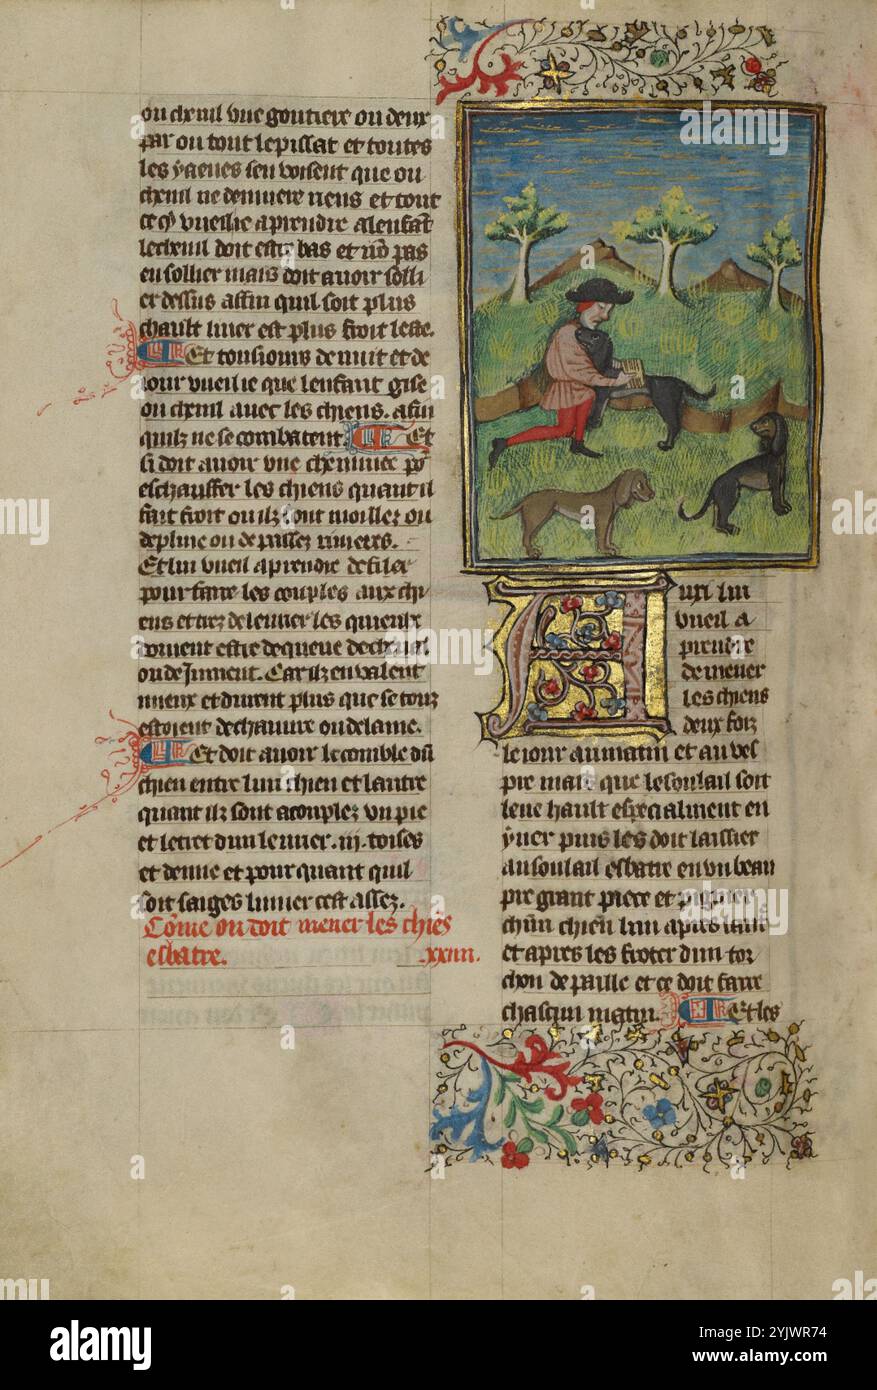 ou chenil vne goutiere ou deux
par ou tout le pissat et toutes
les yaeues sen voisent que ou
chenil ne demuere riens et tout
ce q̄ vueil ie aprendre a lenfāt
le chenil doit estre bas et nō pas
en sollier mais doit auoir solli
er dessus affin quil soit plus
chault yuer est plus froit leste.
Et tousiours de nuit et de
iour vueil ie que lenfant gise
ou chenil auec les chiens. afin
quilz ne se combatent. Et
si doit auoir vne cheminee pō
eschauffer les chiens quant il
fait froit ou ilz sont moillez ou
de pluie ou de passer riuieres.
Et lui vueil aprendre de filer
pour faire les couples aux chi
ens et traiz de leurier les quieulx
doiuent estre de queue de cheual
ou de Jument. Car ilz en valent
mieux et durent plus que se touz
estoient de chanure ou de laine.
Et doit auoir le comble du
chien entre lun chien et lautre
quant ilz sont acouplez vn pie
et le tret dun leurier .iij. toises
et demie et pour quant quil
soit saiges limier cest assez.
Cōme on doit mener les chiēs
esbatre. xxiiii.
Auxi lui
vueil a
prendre
de mener
les chiens
deux foiz
le iour au matin et au ves
pre mais que le soulail soit
leue hault especialment en
yuer puis les doit laissier
au soulail esbatre en vn beau
pre grant piece et pignier
chūn chien lun apres lautre
et apres les froter dun tor
chon de paille et ce doit faire
chascun matin. Et les
alamy
Image ID: 2YJWR74
www.alamy.com